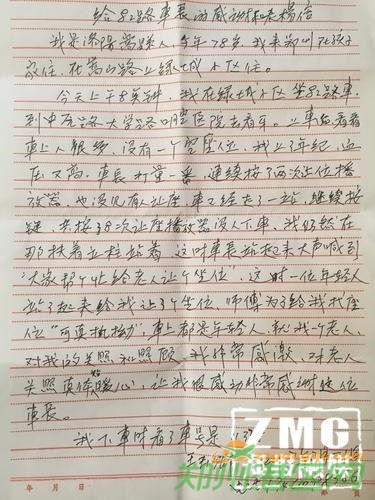 给82路车长的感动和表扬信
我是洛阳嵩县人,今年78岁,我来郑州在孩子
家住,在嵩山路上绿城小区住。
今天上午8点钟,我在绿城小区坐82路车
到中原路大学路明堂医院去看牙。上车前看着
车上人很多,没有一个空座位,我上了年纪,血
压又高,车长打量一番,连续按了两次让位播
放器,也没见有让座,车又经走了一站,继续按
键,共按38次让座播放器没人下车,我仍然在
那扶着立柱站着,这时车长站起来大声喊到
“大家帮个忙给老人让个坐位”,这时一位年轻人
站了起来给我让了个坐位,师傅为了给我找座
位“可真执拗”,车上都是年轻人,就我一个老人,
对我的关照和照顾,我非常感激,对老人
关照真体贴暖心,让我很感动非常感谢这位
车长。
我下车时看了车号是
ZMG
年 月 日